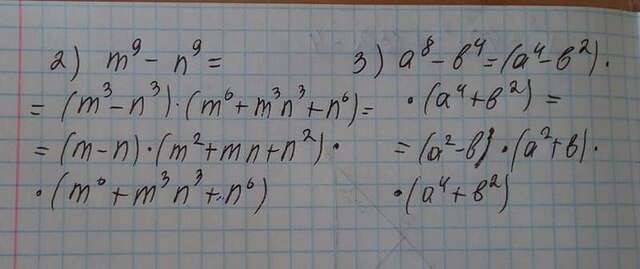 2) m⁹ − n⁹ =
= (m³ − n³) · (m⁶ + m³n³ + n⁶) =
= (m − n) · (m² + mn + n²) ·
· (m⁶ + m³n³ + n⁶)
3) a⁸ − в⁴ = (a⁴ − в²) ·
· (a⁴ + в²) =
= (a² − в) · (a² + в) ·
· (a⁴ + в²)